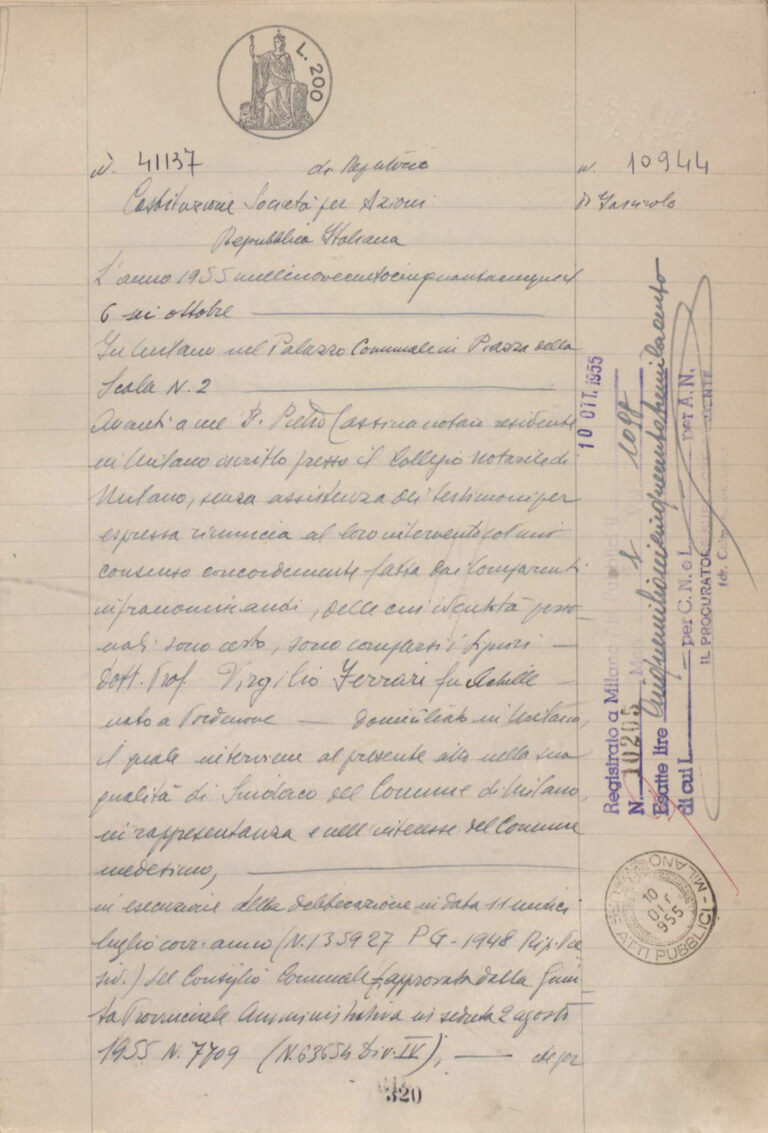 L. 200
N. 41137 di Repertorio N. 10944
Costituzione Società per Azioni di Fascicolo
Repubblica Italiana
L'anno 1955 millenovecentocinquantacinque il
6 sei ottobre
In Milano nel Palazzo Comunale in Piazza della
Scala N. 2
Avanti a me D. Pietro Cassina notaio residente
in Milano iscritto presso il Collegio Notarile di
Milano, senza assistenza dei testimoni per
espressa rinuncia al loro intervento col mio
consenso concordemente fatta dai Comparenti
infranominandi, delle cui identità perso
nali sono certo, sono comparsi i Signori
Dott. Prof. Virgilio Ferrari fu Achille
nato a Pordenone domiciliato in Milano,
il quale interviene al presente atto nella sua
qualità di Sindaco del Comune di Milano,
in rappresentanza e nell'interesse del Comune
medesimo,
in esecuzione della deliberazione in data 11 undici
luglio corr. anno (N. 135927 PG - 1948 Rip.
) del Consiglio Comunale (approvata dalla Giun
ta Provinciale Amministrativa in seduta 2 agosto
1955 N. 7709 (N. 63654 Div. IV), che per
320
10 OTT. 1955
Registrato a Milano
N. 10205
Esatte lire cinquemilionicinquantatremilacento
di cui L. per C.N. e L. per A.N.
IL PROCURATORE
ATTI PUBBLICI - MILANO
10
OTT
955